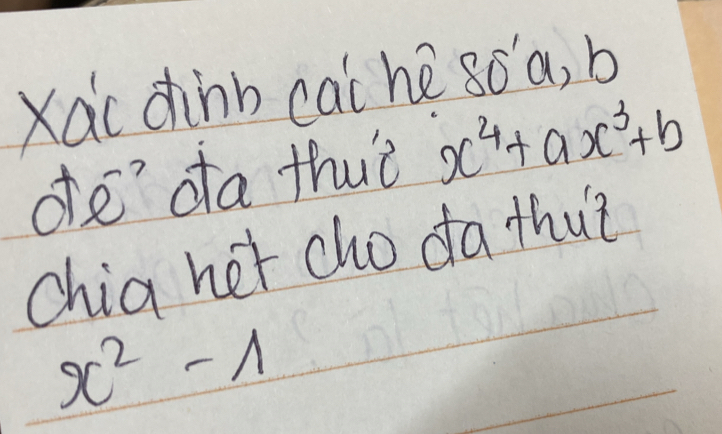 Xác định các hệ số a, b
để đa thức x⁴ + ax³ + b
chia hết cho đa thức
x² - 1